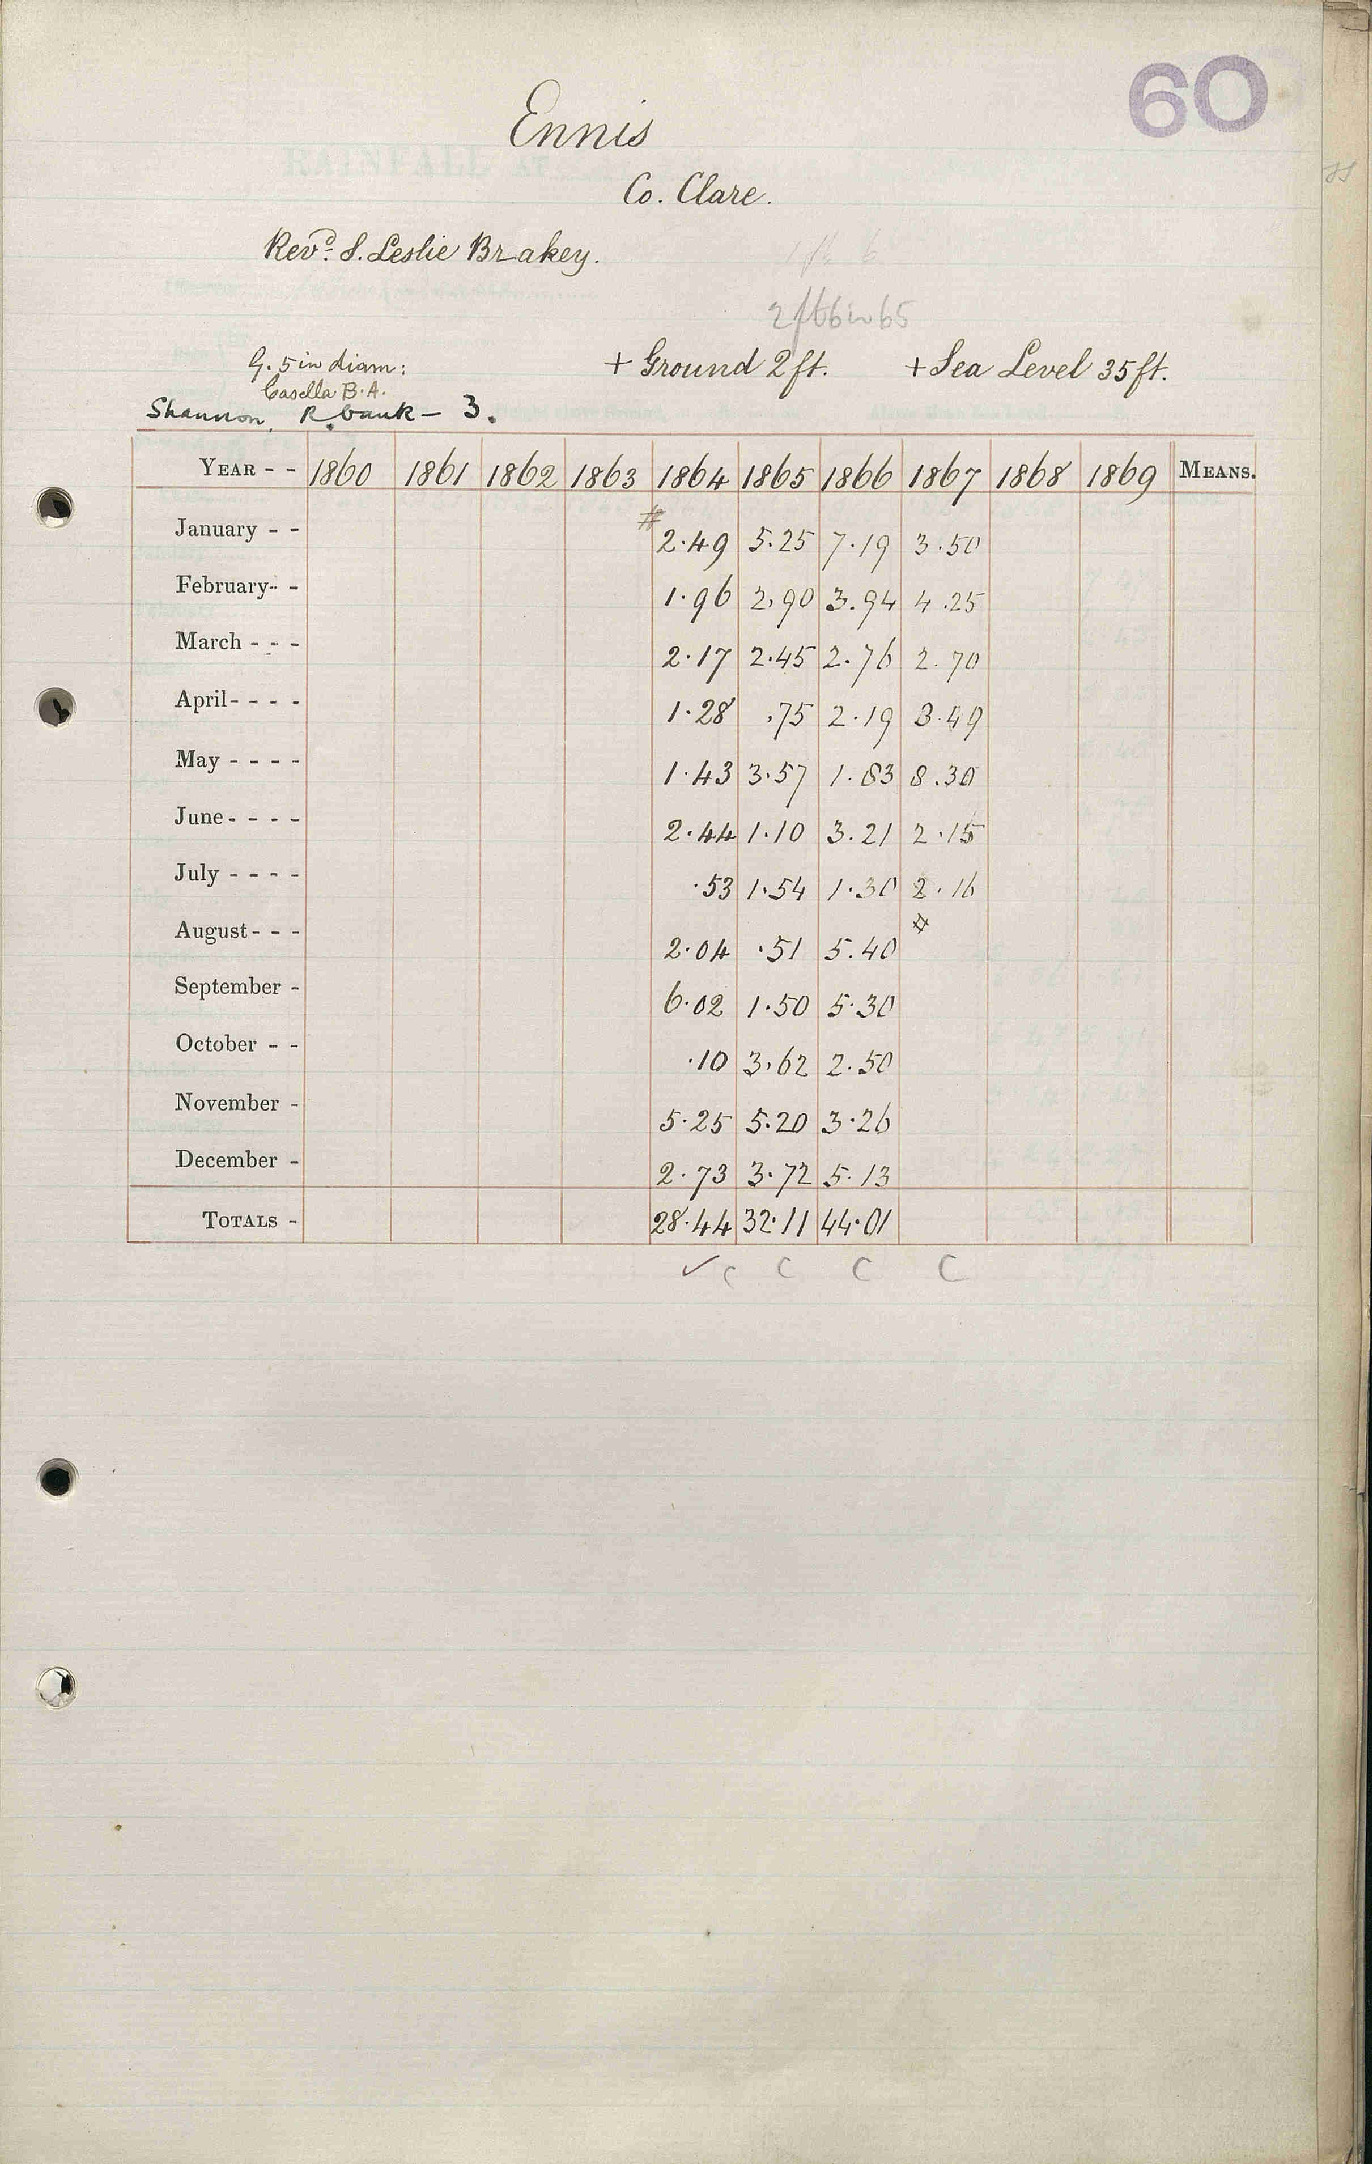 60
Ennis
Co. Clare.
Revd. S. Leslie Brakey.
2ft 6in 65
G. 5in diam: + Ground 2ft. + Sea Level 35ft.
Casella B.A.
Shannon, R. bank - 3.
YEAR - - 1860 1861 1862 1863 1864 1865 1866 1867 1868 1869 MEANS.
January - - # 2.49 5.25 7.19 3.50
February - - 1.96 2.90 3.94 4.25
March - - - 2.17 2.45 2.76 2.70
April - - - - 1.28 .75 2.19 3.49
May - - - - 1.43 3.57 1.83 3.30
June - - - - 2.44 1.10 3.21 2.15
July - - - - .53 1.54 1.30 2.16
August - - - 2.04 .51 5.40
September - 6.02 1.50 5.30
October - - .10 3.62 2.50
November - 5.25 5.20 3.26
December - 2.73 3.72 5.13
TOTALS - 28.44 32.11 44.01
✓ c c c c